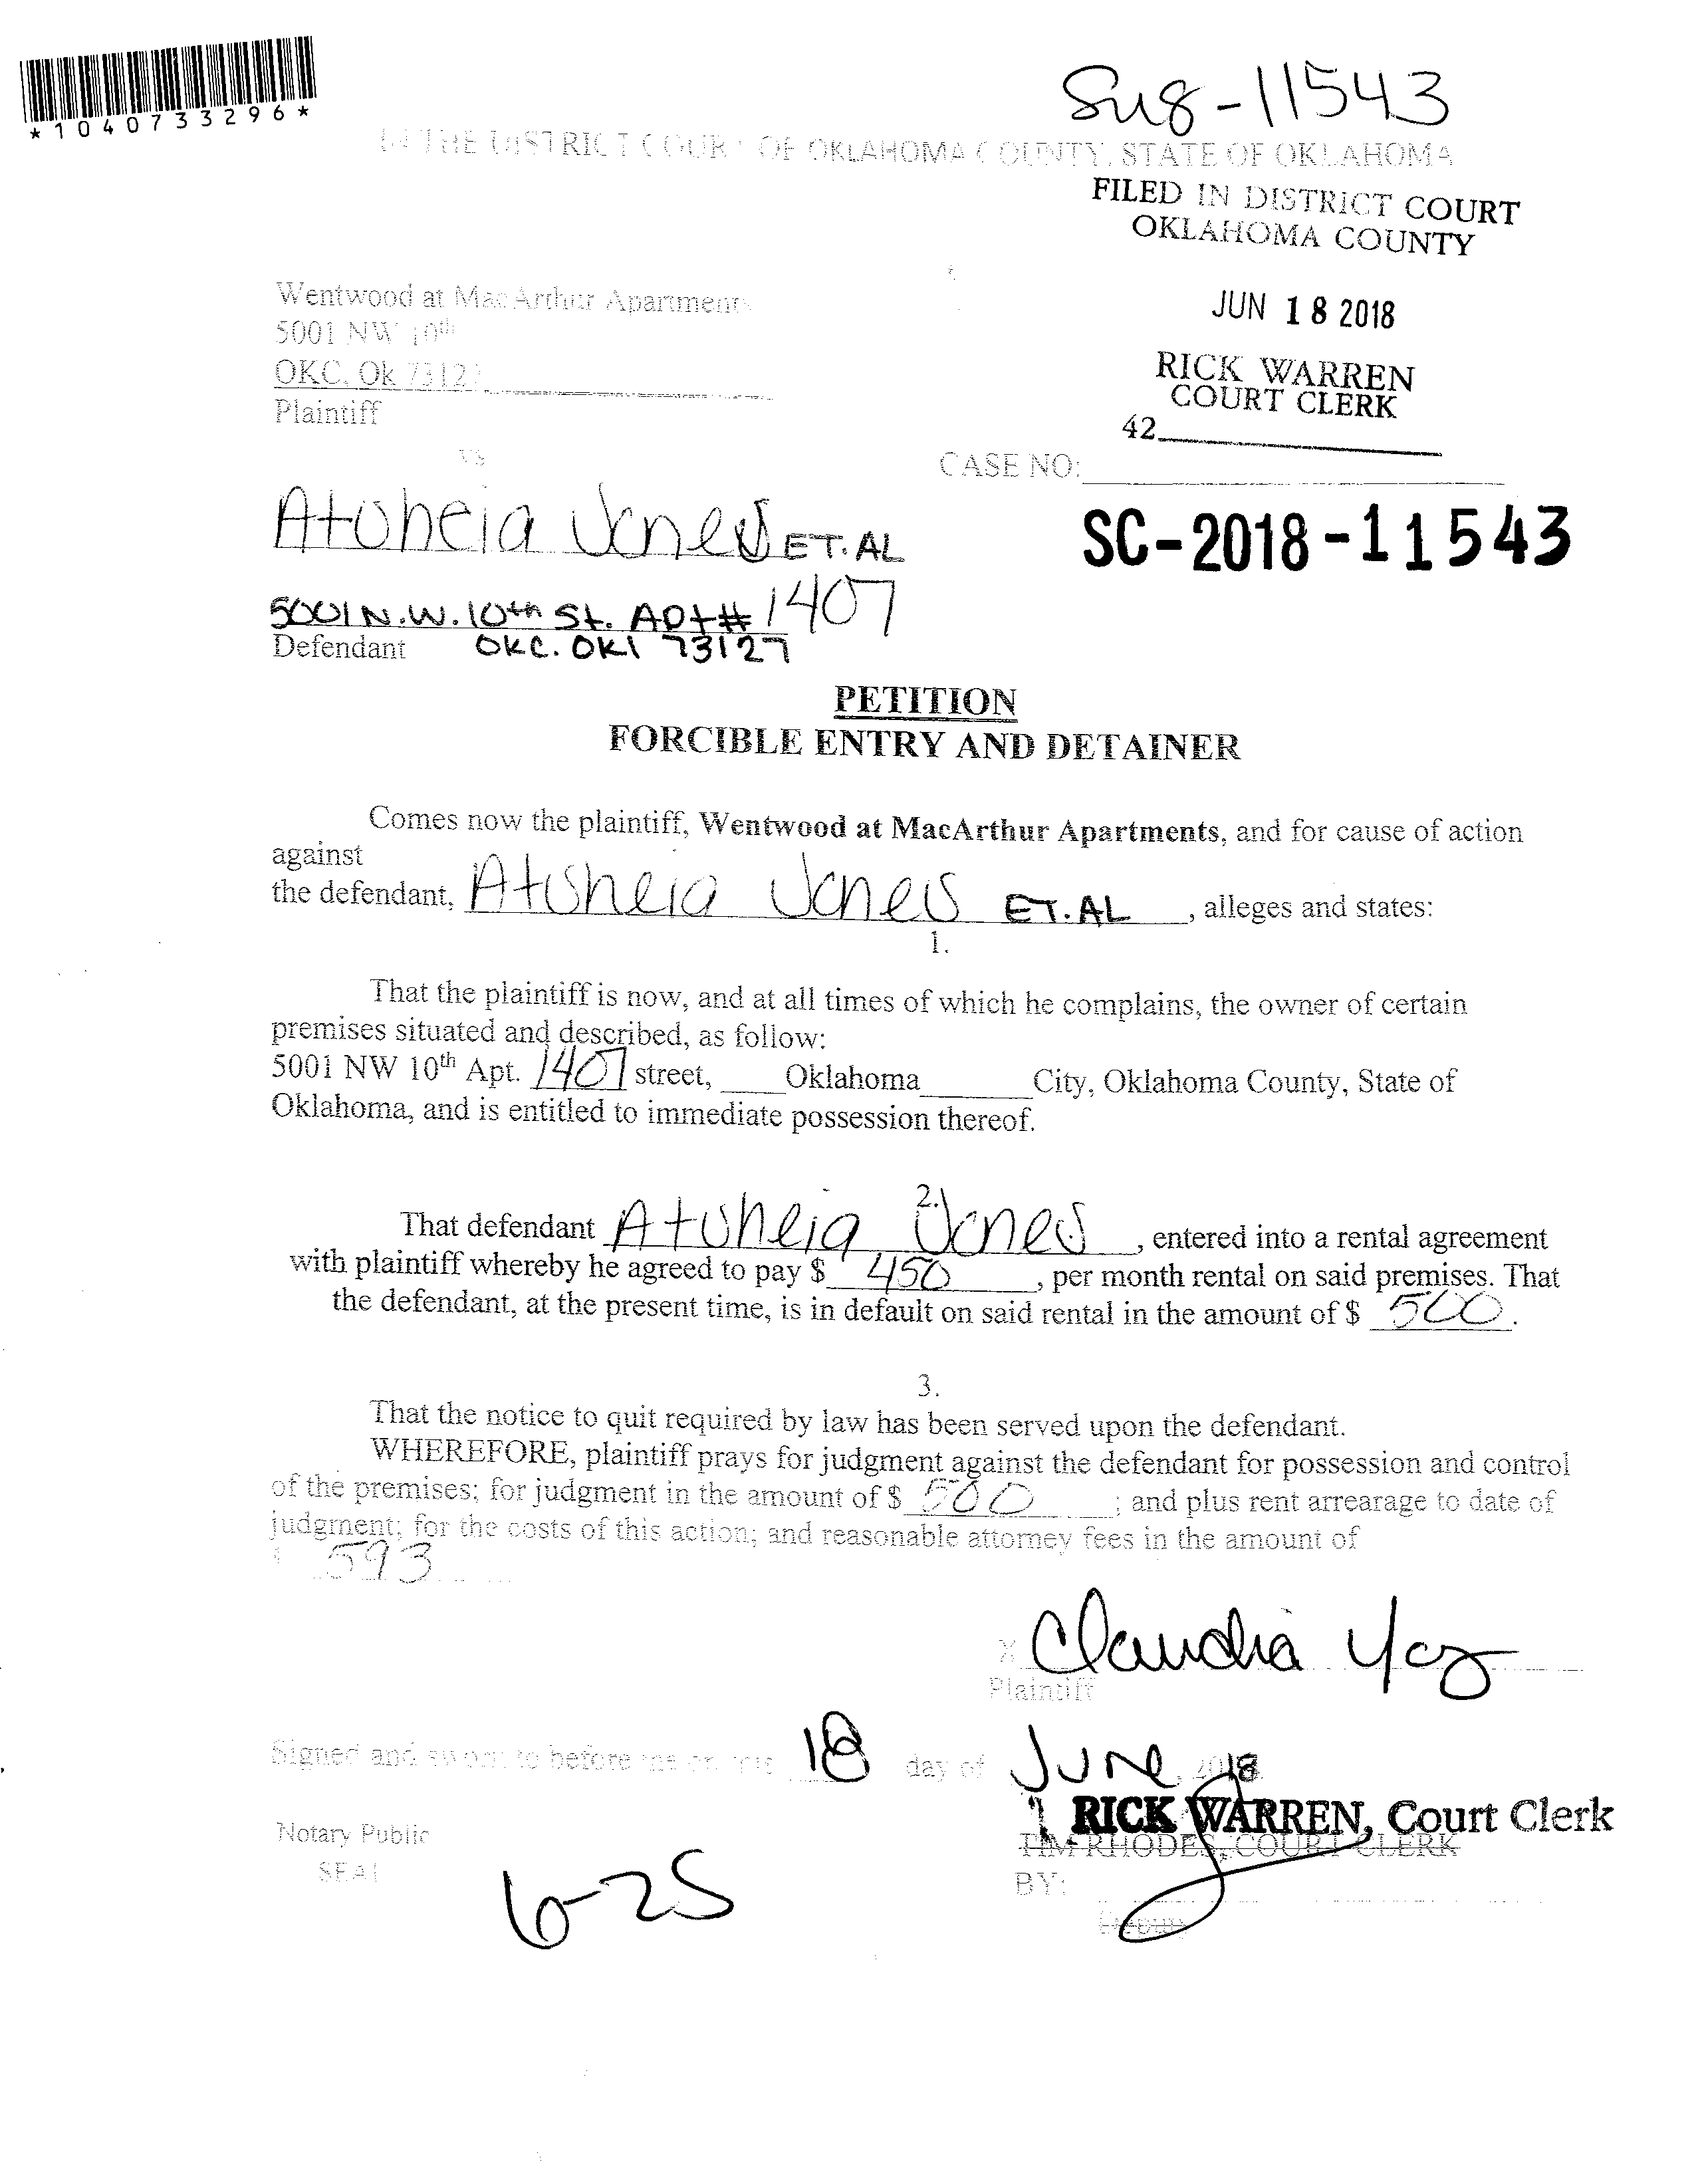 *1040733296*
-11543
IN THE DISTRICT COURT OF OKLAHOMA COUNTY, STATE OF OKLAHOMA
FILED IN DISTRICT COURT
OKLAHOMA COUNTY
JUN 18 2018
RICK WARREN
COURT CLERK
42
Wentwood at MacArthur Apartments
5001 NW 10th
OKC, Ok 73127
Plaintiff
vs
CASE NO:
SC-2018-11543
Jones ET.AL
5001 N.W. 10th St. APt# 1407
Defendant OKC. OKl 73127
PETITION
FORCIBLE ENTRY AND DETAINER
Comes now the plaintiff, Wentwood at MacArthur Apartments, and for cause of action
against
the defendant, Jones ET.AL, alleges and states:
1.
That the plaintiff is now, and at all times of which he complains, the owner of certain
premises situated and described, as follow:
5001 NW 10th Apt. 1407 street, Oklahoma City, Oklahoma County, State of
Oklahoma, and is entitled to immediate possession thereof.
2.
That defendant Jones, entered into a rental agreement
with plaintiff whereby he agreed to pay $ 450, per month rental on said premises. That
the defendant, at the present time, is in default on said rental in the amount of $ 500.
3.
That the notice to quit required by law has been served upon the defendant.
WHEREFORE, plaintiff prays for judgment against the defendant for possession and control
of the premises; for judgment in the amount of $ 500; and plus rent arrearage to date of
judgment; for the costs of this action; and reasonable attorney fees in the amount of
$ 593
X Claudia
Plaintiff
Signed and sworn to before me on this 18 day of June, 2018
RICK WARREN, Court Clerk
TIM RHODES, COURT CLERK
Notary Public
SEAL
BY:
Deputy
6-25